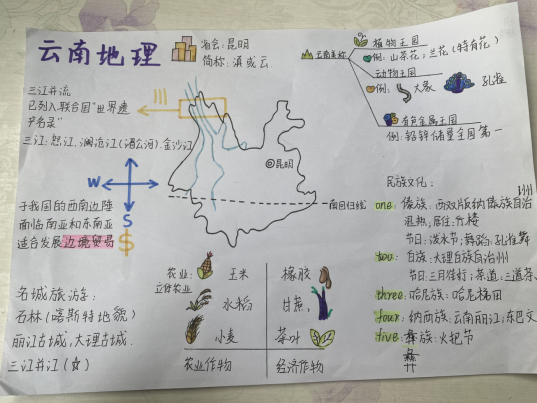 云南地理
省会:昆明
简称:滇或云
三江并流
已列入联合国"世界遗
产名录"
三江:怒江、澜沧江(湄公河)、金沙江
W
S
于我国的西南边陲
面临南亚和东南亚
适合发展边境贸易
$
名城旅游:
石林(喀斯特地貌)
丽江古城,大理古城.
三江并江(☆)
◎昆明
南回归线
农业:
立体农业
玉米
水稻
小麦
农业作物
橡胶
甘蔗,
茶叶
经济作物
云南美称
植物王国
例:山茶花;兰花(特有花)
动物王国
例: 大象 孔雀
有色金属王国
例:铅锌储量全国第一
民族文化:
one 傣族:西双版纳傣族自治州
湿热,居住:竹楼
节日:泼水节;舞蹈:孔雀舞
two: 白族:大理白族自治州
节日:三月街;茶道:三道茶、
three:哈尼族:哈尼梯田
four:纳西族:云南丽江;东巴文
five:彝族:火把节
彝